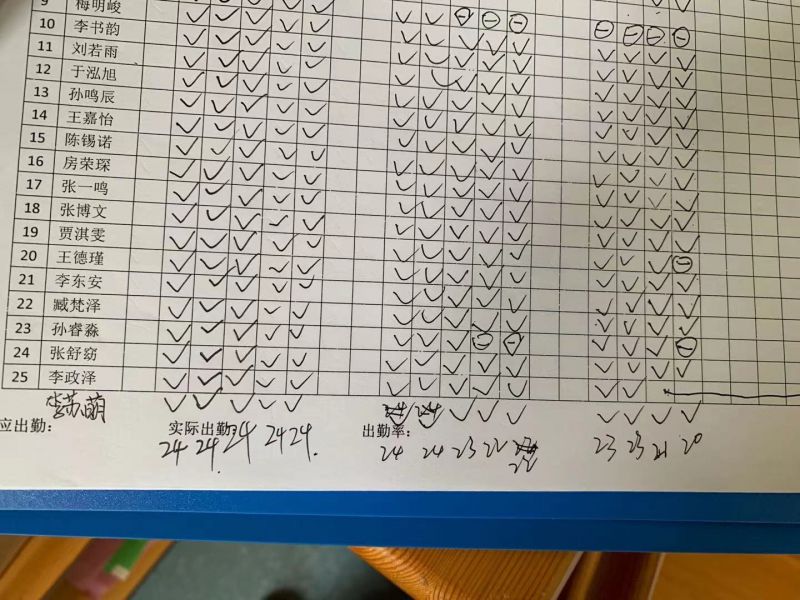 9 梅明峻 ✓ ✓ ✓ ✓ ✓ ✓ ✓ ⊖ ⊖ ⊖
10 李书韵
11 刘若雨
12 于泓旭
13 孙鸣辰
14 王嘉怡
15 陈锡诺
16 房荣琛
17 张一鸣
18 张博文
19 贾淇雯
20 王德瑾
21 李东安
22 臧梵泽
23 孙睿淼
24 张舒窈
25 李政泽
应出勤： 实际出勤: 出勤率：
24 24. 24 24 24. 24 24 23 22 22 23 23 21 20